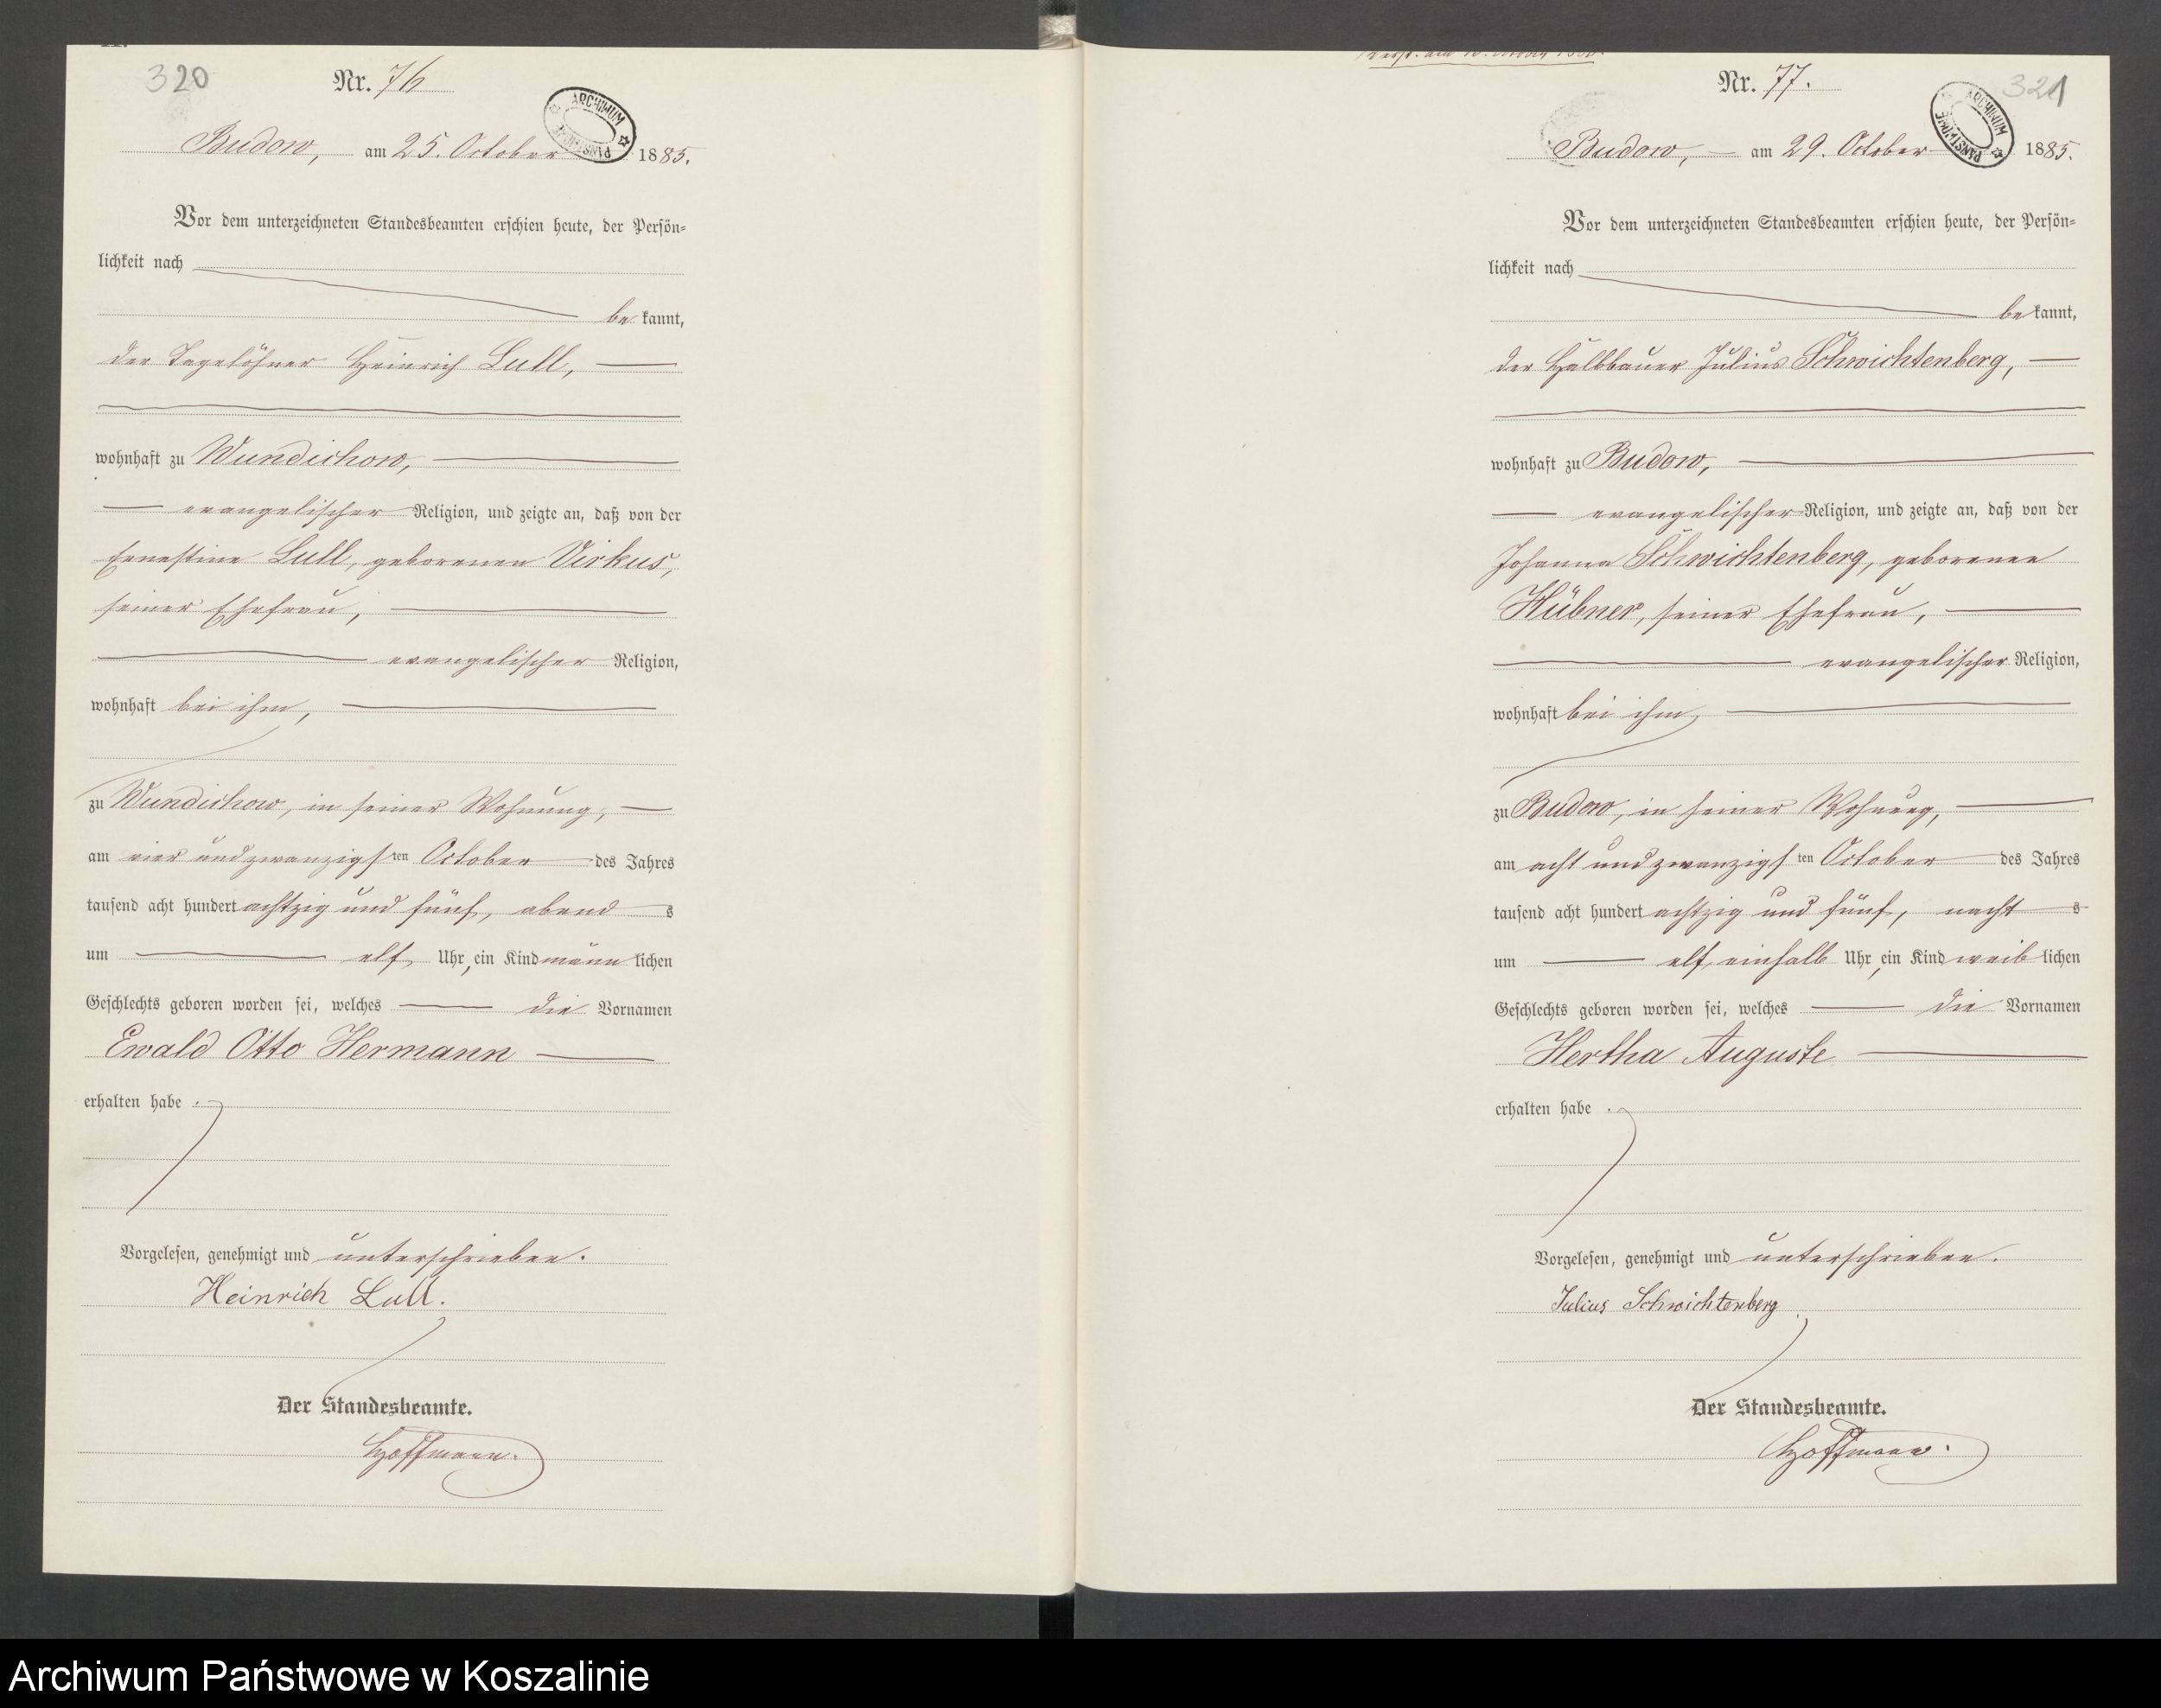 320
Nr. 76
ARCHIWUM PAŃSTWOWE
Budow, am 25. October 1885.
Vor dem unterzeichneten Standesbeamten erschien heute, der Persön-
lichkeit nach
be kannt,
der Tagelöhner Heinrich Lull,
wohnhaft zu Wundichow,
evangelischer Religion, und zeigte an, daß von der
Ernestine Lull, geborenen Virkus,
seiner Ehefrau,
evangelischer Religion,
wohnhaft bei ihm,
zu Wundichow, in seiner Wohnung,
am vier und zwanzigsten October des Jahres
tausend acht hundert achtzig und fünf, abends
um elf Uhr, ein Kind männlichen
Geschlechts geboren worden sei, welches die Vornamen
Ewald Otto Hermann
erhalten habe.
Vorgelesen, genehmigt und unterschrieben.
Heinrich Lull.
Der Standesbeamte.
Hoffmann.
Nr. 77.
321
ARCHIWUM PAŃSTWOWE
Budow, am 29. October 1885.
Vor dem unterzeichneten Standesbeamten erschien heute, der Persön-
lichkeit nach
be kannt,
der Halbbauer Julius Schwichtenberg,
wohnhaft zu Budow,
evangelischer Religion, und zeigte an, daß von der
Johanna Schwichtenberg, geborenen
Hübner, seiner Ehefrau,
evangelischer Religion,
wohnhaft bei ihm,
zu Budow, in seiner Wohnung,
am acht und zwanzigsten October des Jahres
tausend acht hundert achtzig und fünf, nachts
um elf einhalb Uhr, ein Kind weiblichen
Geschlechts geboren worden sei, welches die Vornamen
Hertha Auguste
erhalten habe.
Vorgelesen, genehmigt und unterschrieben.
Julius Schwichtenberg
Der Standesbeamte.
Hoffmann.
Archiwum Państwowe w Koszalinie